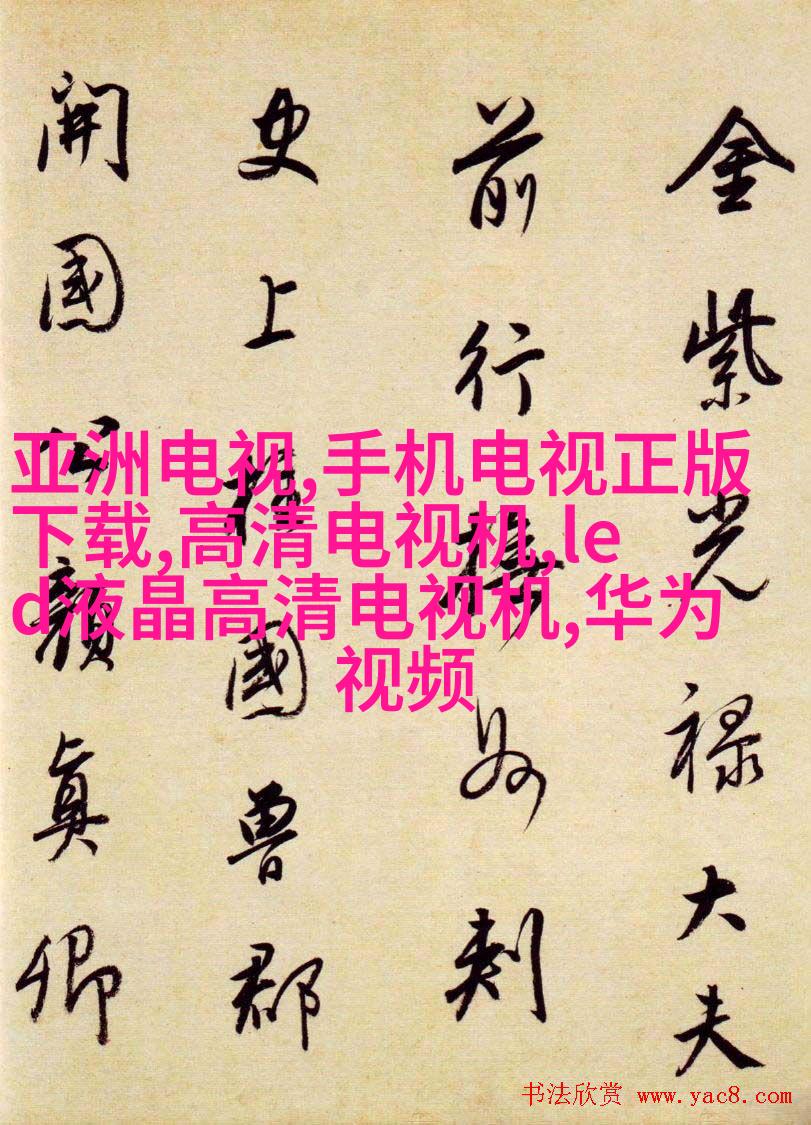 金紫光禄大夫
前行撫州刺
史上柱國魯郡
開國公顏眞卿
亚洲电视,手机电视正版
下载,高清电视机,le
d液晶高清电视机,华为
视频
书法欣赏 www.yac8.com